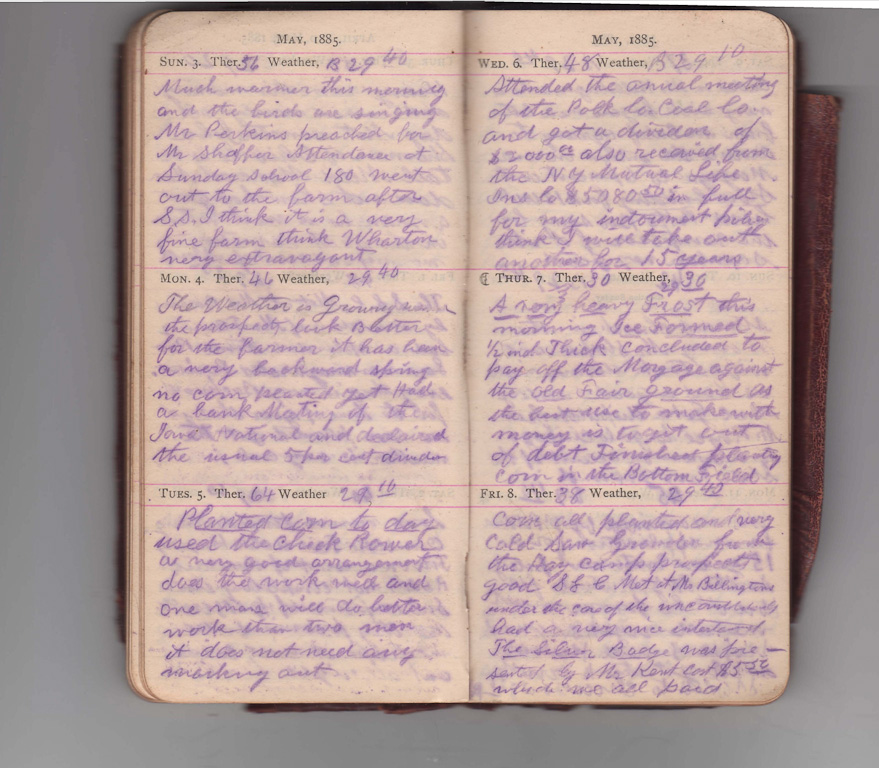 MAY, 1885.
SUN. 3. Ther. 56 Weather, B 29 40
Much warmer this morning
and the birds are singing
Mr Perkins preached for
Mr Shaffer Attendance at
Sunday School 180 went
out to the farm after
S.S. I think it is a very
fine farm think Wharton
very extravagant
MON. 4. Ther. 46 Weather, 29 40
The Weather is Growing
the prospects look Better
for the farmer it has been
a very backward spring
no corn planted yet Had
a bank Meeting of the
Iowa National and declaired
the usual 5 per cent
TUES. 5. Ther. 64 Weather 29 10
Planted Corn to day
used the Check Rower
a very good arrangement
does the work well and
one man will do better
work than two men
it does not need any
marking out
MAY, 1885.
WED. 6. Ther. 48 Weather, B 29 10
Attended the anual meeting
of the Polk Co Coal Co
and got a dividen of
$2000 00 also received from
the N.Y Mutual Life
Ins Co $5080 50 in full
for my indoument
think I will take out
another for 15 years
THUR. 7. Ther. 30 Weather, 29 30
A very heavy Frost this
morning Ice Formed
1/2 ind Thick concluded to
pay off the Morgage against
the old Fair ground as
the best use to make with
money is to get out
of debt Finished planting
corn in the Bottom Field
FRI. 8. Ther. 38 Weather, 29 40
Corn all planted and very
Cold Saw from
the Hay camp prospects
good Met at Mr Billingtons
under the care of the
had a very nice
The Silver Badge was pre-
sented by Mr Kent cost $5 50
which we all paid